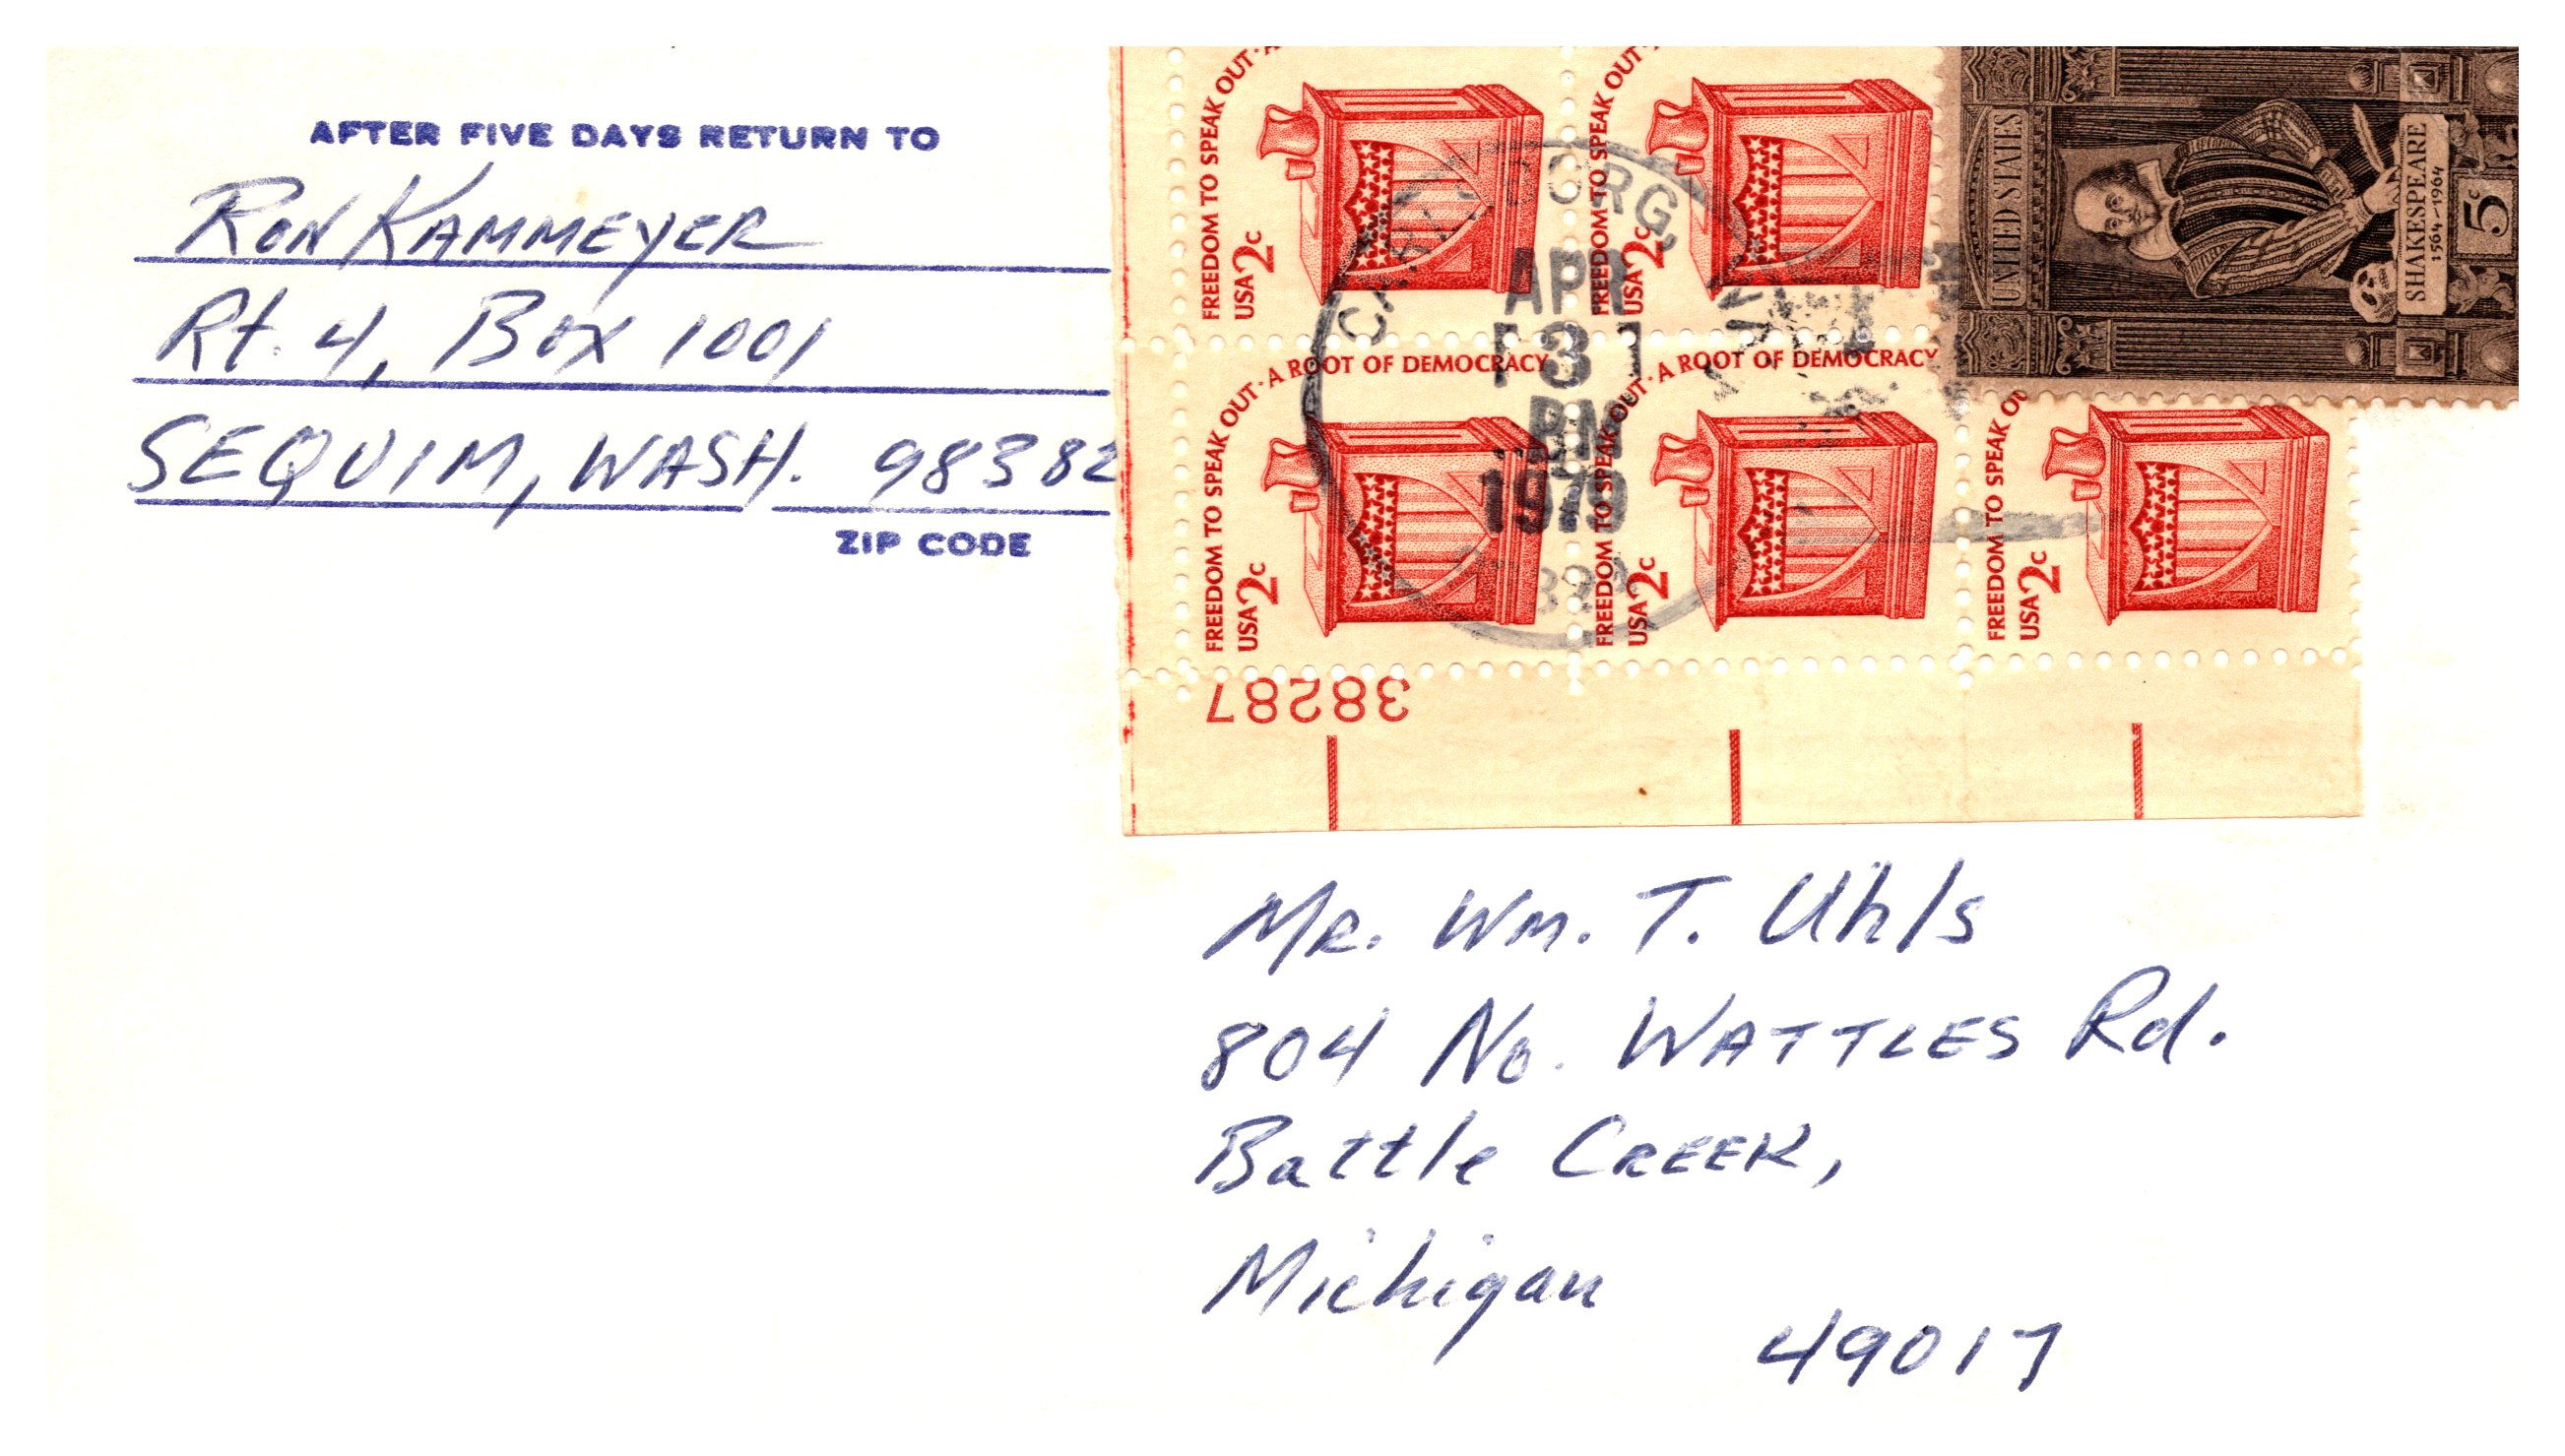 AFTER FIVE DAYS RETURN TO
RON KAMMEYER
Rt. 4, Box 1001
SEQUIM, WASH. 98382
ZIP CODE
FREEDOM TO SPEAK OUT
USA 2c
FREEDOM TO SPEAK OUT
USA 2c
UNITED STATES
SHAKESPEARE
1564-1964
5c
APR
3
PM
1979
FREEDOM TO SPEAK OUT · A ROOT OF DEMOCRACY
USA 2c
FREEDOM TO SPEAK OUT · A ROOT OF DEMOCRACY
USA 2c
FREEDOM TO SPEAK
USA 2c
38287
MR. WM. T. Uhls
804 No. WATTLES Rd.
Battle CREEK,
Michigan
49017